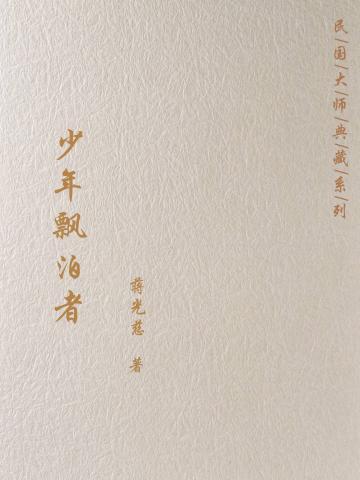 民|国|大|师|典|藏|系|列
少年飘泊者
蒋光慈 著